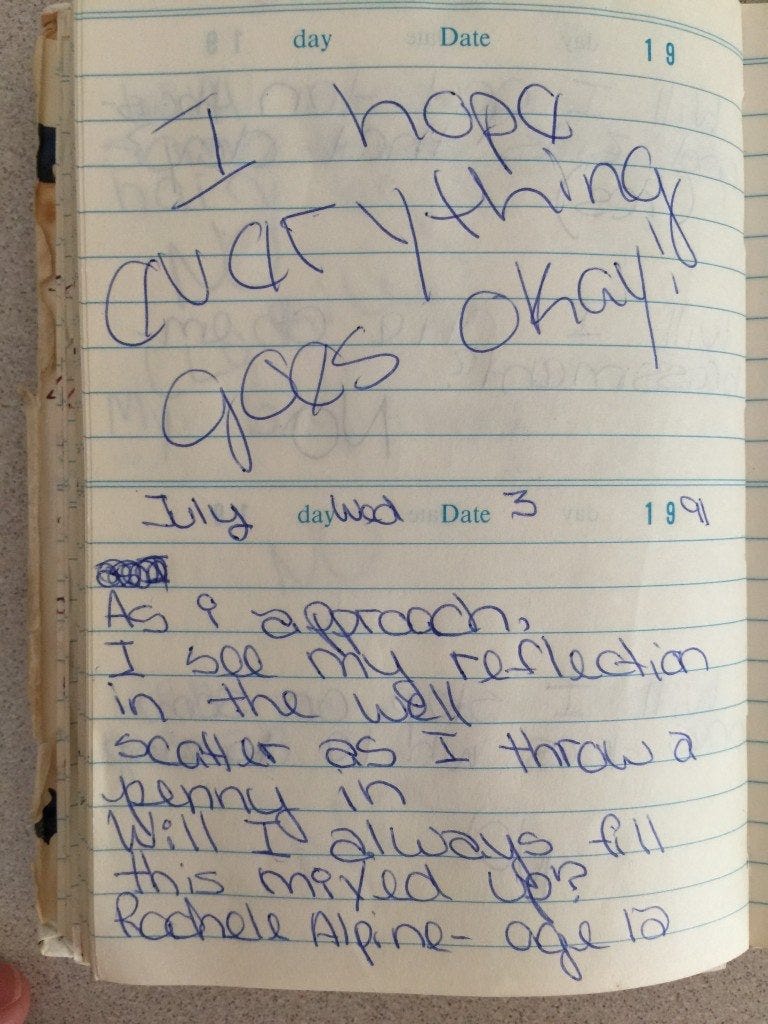 day Date 19
I hope
everything
goes okay!
July day Wed Date 3 1991
As I approach,
I see my reflection
in the well
scatter as I throw a
penny in
Will I always fill
this mixed up?
Rachele Alpine- age 12